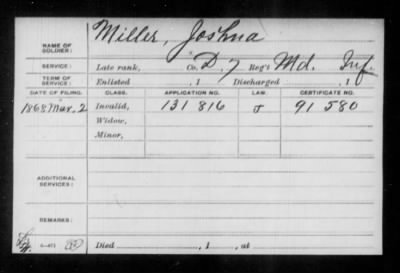 Miller, Joshua
NAME OF SOLDIER:
SERVICE: Late rank, Co. D, 7 Reg't Md. Inf.
TERM OF SERVICE: Enlisted , 1 Discharged , 1
DATE OF FILING. CLASS. APPLICATION NO. LAW. CERTIFICATE NO.
1868 Mar. 2 Invalid, 131 816 J 91 580
Widow,
Minor,
ADDITIONAL SERVICES:
REMARKS:
Died , 1 , at